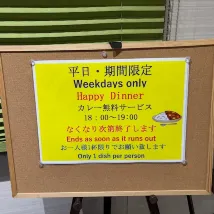 平日・期間限定
Weekdays only
Happy Dinner
カレー無料サービス
18：00～19:00
なくなり次第終了します
Ends as soon as it runs out
お一人様1杯限りでお願い致します
Only 1 dish per person